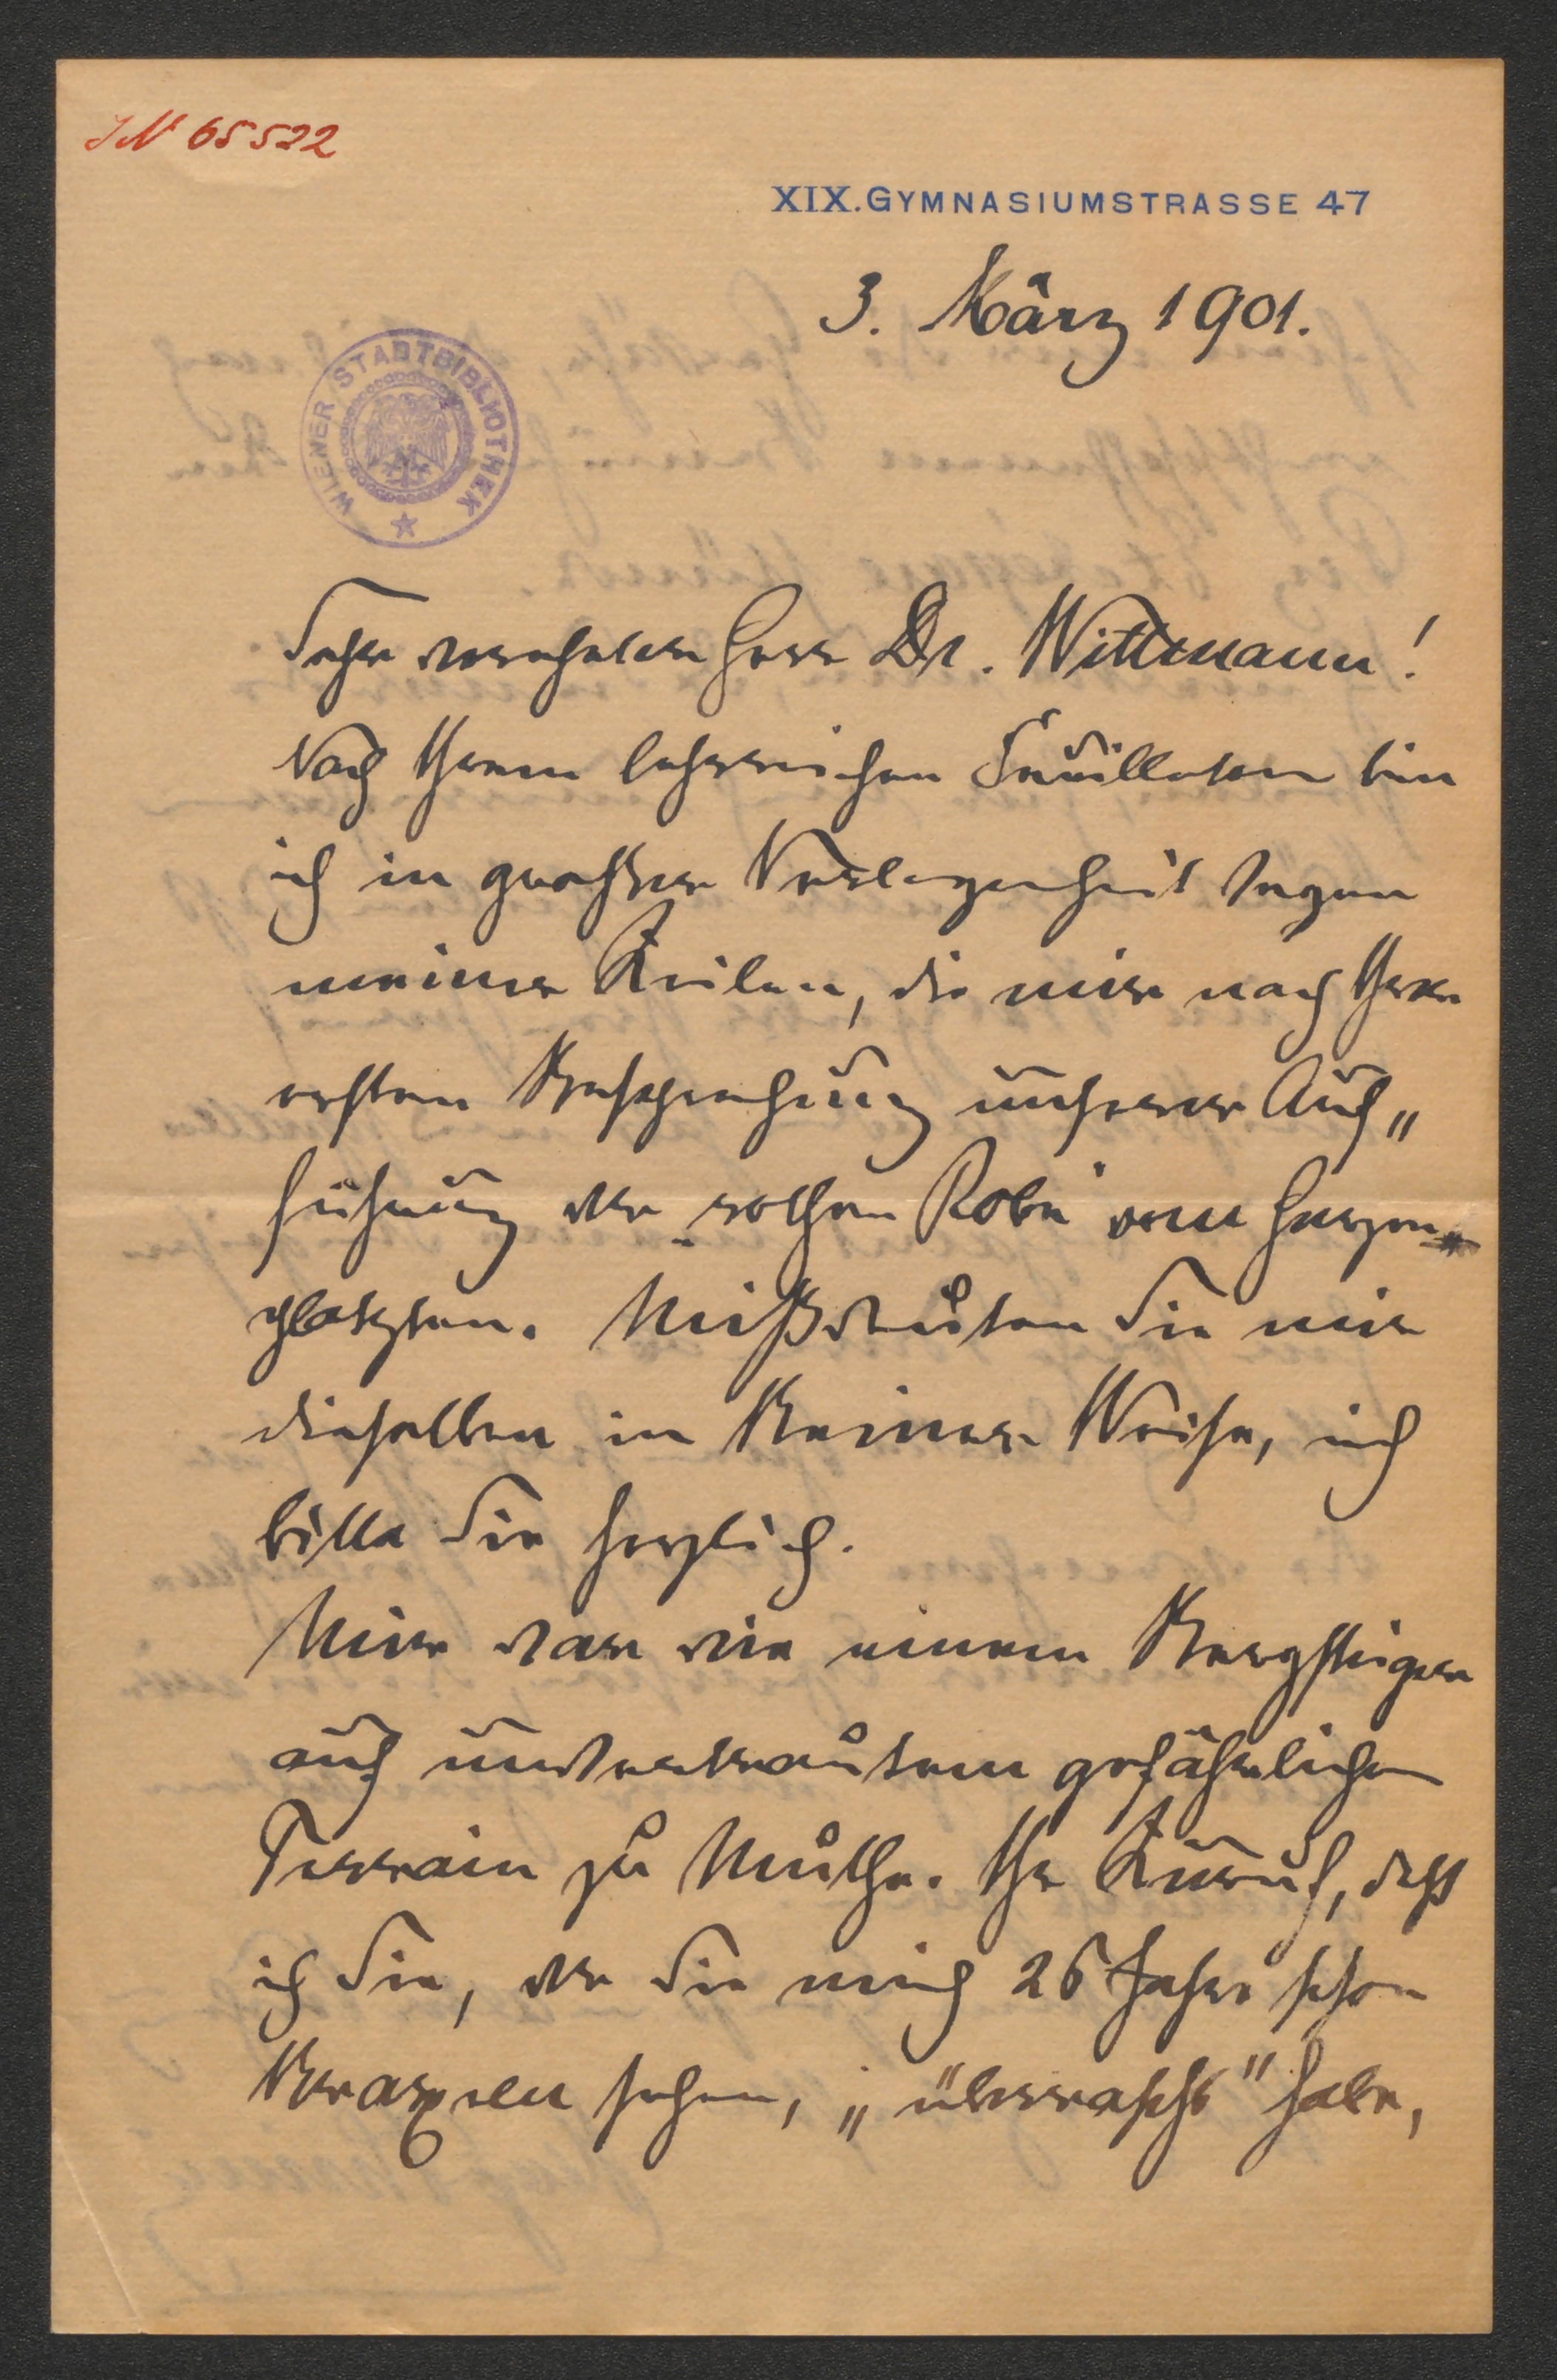 JN 65522
XIX. GYMNASIUMSTRASSE 47
3. März 1901.
WIENER STADTBIBLIOTHEK
Sehr verehrter Herr Dr. Wittmann!
Nach Ihrem lehrreichen Feuilleton bin
ich in grosser Verlegenheit wegen
meiner Zeilen, die mir nach Ihrer
ersten Besprechung unserer Auf„
führung der „rothen Robe" vom Herzen
platzten. Mißdeuten Sie mir
dieselben in keiner Weise, ich
bitte Sie herzlich.
Mir war wie einem Bergsteiger
auf unvertrautem gefährlichen
Terrain zu Muthe. Ihr Zuruf, dass
ich Sie, der Sie mich 26 Jahre schon
kraxeln sehen, „überrascht" habe,